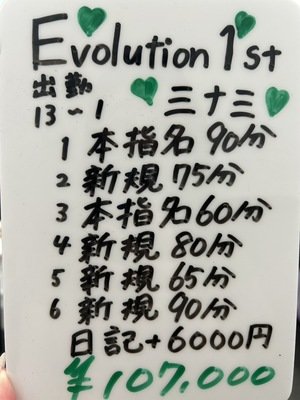 Evolution 1st
出勤
13~1 三十三
1 本指名 90分
2 新規 75分
3 本指名 60分
4 新規 80分
5 新規 65分
6 新規 90分
日記+6000円
¥107,000